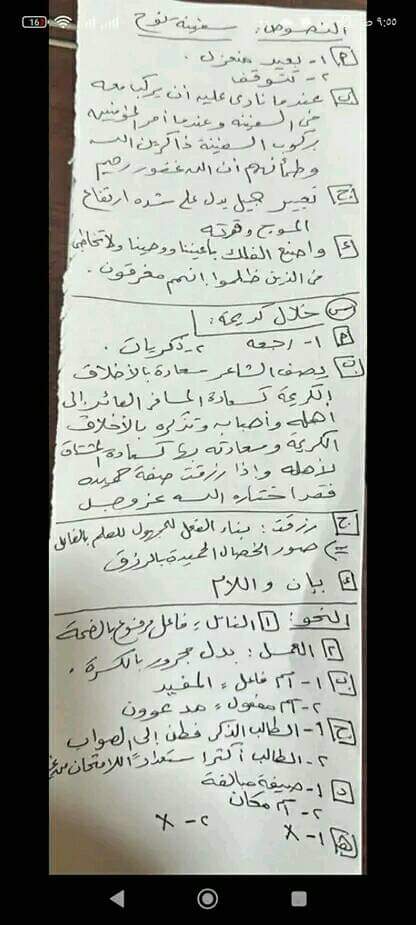 ٩:٥٥
16
النصوص: سفينة نوح
أ ١- بعيد منعزل.
٢- تتوقف
ب عندما نادى عليه أن يركب معه
في السفينة وعندما أمر المؤمنين
بركوب السفينة ذاكرين الله
وطمأنهم أن الله غفور رحيم
ج تعبير جميل يدل على شدة ارتفاع
الموج وقوته
د واصنع الفلك بأعيننا ووحينا ولا تخاطبني
في الذين ظلموا إنهم مغرقون.
س خلال كريمة:
أ ١- رجعه ٢- ذكريات.
ب يصف الشاعر سعادة بالأخلاق
الكريمة كسعادة المسافر العائد إلى
أهله وأحبابه وتذكره بالأخلاق
الكريمة وسعادته بها كسعادة المشتاق
لأهله وإذا رزقت صفة حميدة
فقد اختاره الله عز وجل
ج رزقت: بناء الفعل للمجهول للعلم بالفاعل
صور الخصال الحميدة بالرزق
د بيان واللام
النحو: ١ الفاعل: فاعل مرفوع بالضمة
٢ العمل: بدل مجرور بالكسرة.
ب ١- اسم فاعل = المفيد
٢- اسم مفعول =
ج ١- الطالب الذكي فطن إلى الصواب
٢- الطالب أكثر استعدادًا للامتحان من
د ١- صيغة مبالغة
٢- اسم مكان
هـ ١- X ٢- X